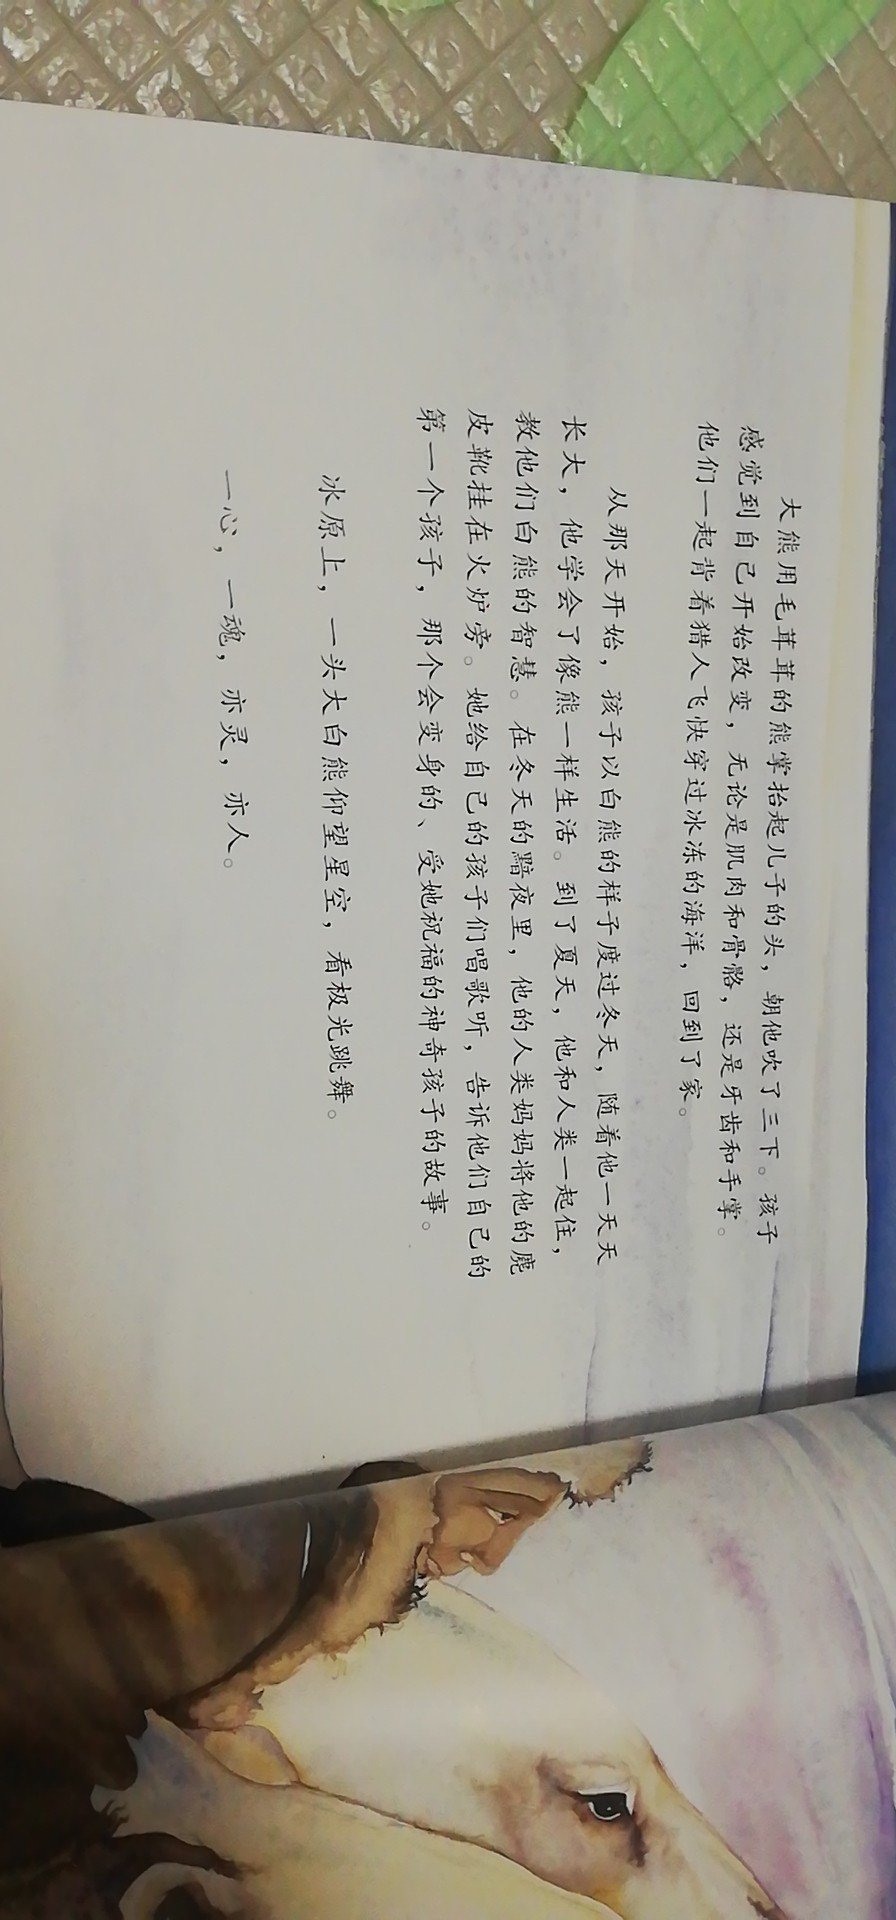 大熊用毛茸茸的熊掌抬起儿子的头，朝他吹了三下。孩子
感觉到自己开始改变，无论是肌肉和骨骼，还是牙齿和手掌。
他们一起背着猎人飞快穿过冰冻的海洋，回到了家。
从那天开始，孩子以白熊的样子度过冬天，随着他一天天
长大，他学会了像熊一样生活。到了夏天，他和人类一起住，
教他们白熊的智慧。在冬天的黯夜里，他的人类妈妈将他的鹿
皮靴挂在火炉旁。她给自己的孩子们唱歌听，告诉他们自己的
第一个孩子，那个会变身的、受她祝福的神奇孩子的故事。
冰原上，一头大白熊仰望星空，看极光跳舞。
一心，一魂，亦灵，亦人。